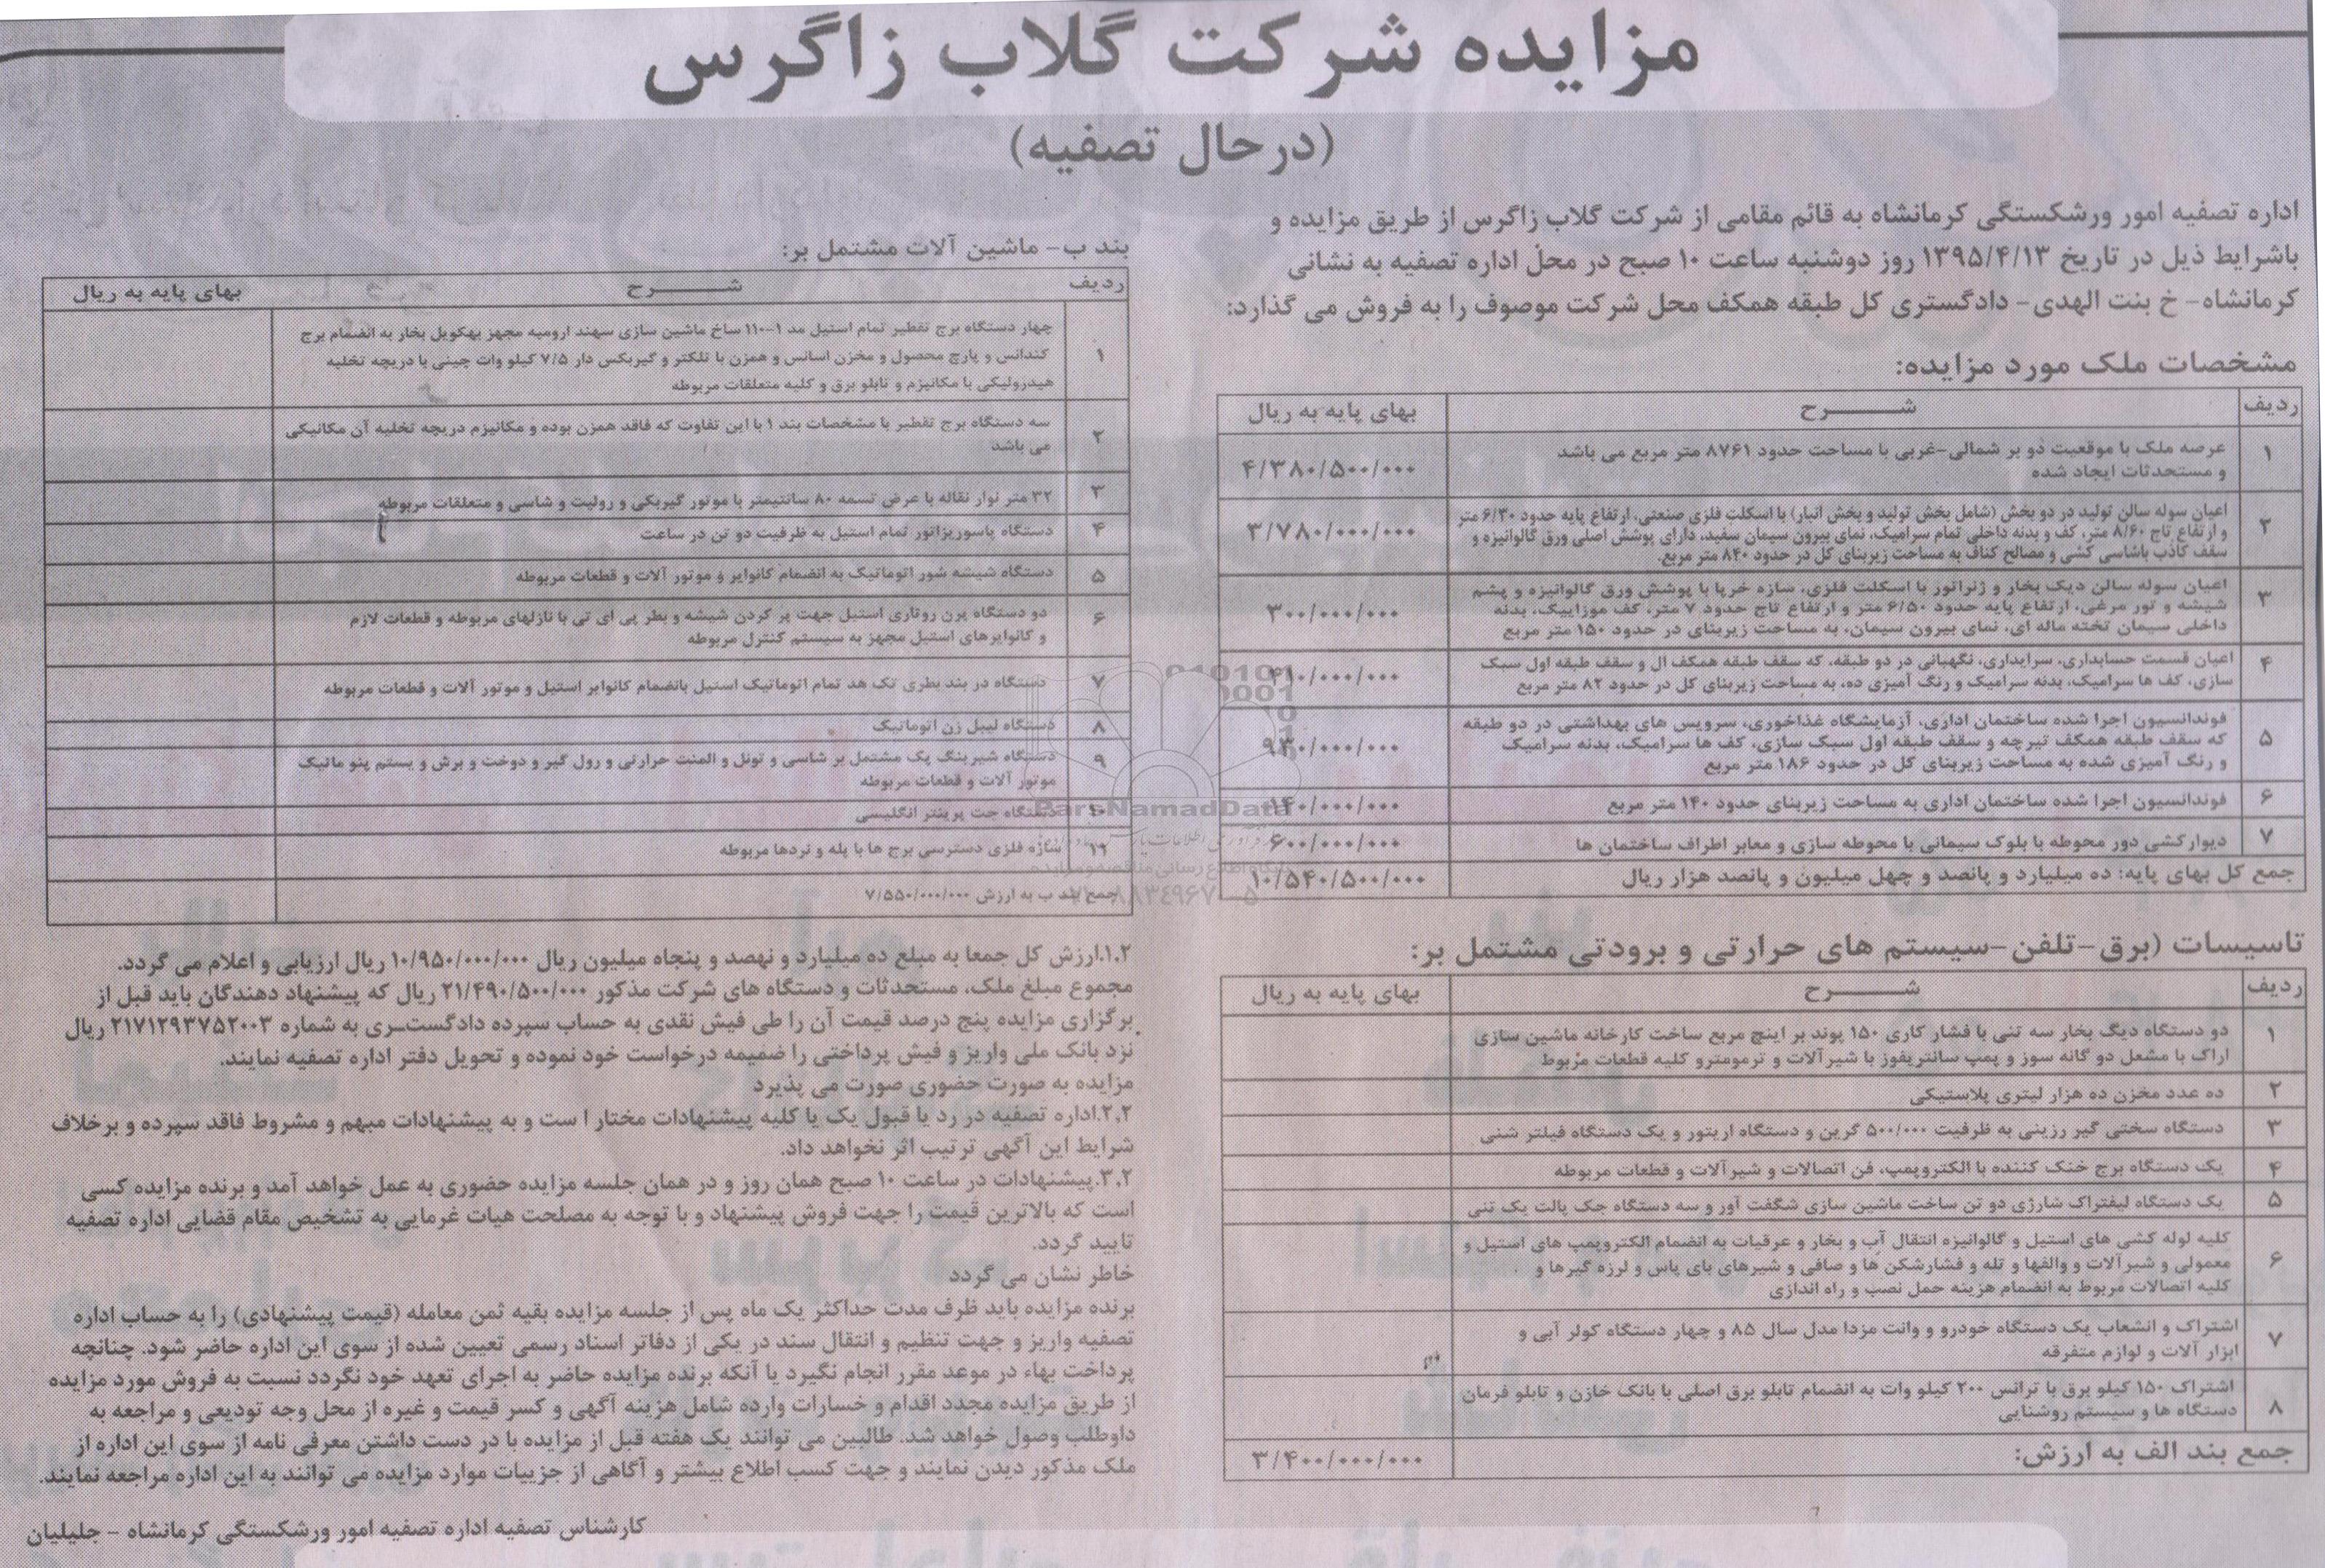 مزایده شرکت گلاب زاگرس
(درحال تصفیه)
اداره تصفیه امور ورشکستگی کرمانشاه به قائم مقامی از شرکت گلاب زاگرس از طریق مزایده و
باشرایط ذیل در تاریخ ۱۳۹۵/۴/۱۳ روز دوشنبه ساعت ۱۰ صبح در محل اداره تصفیه به نشانی
کرمانشاه- خ بنت الهدی- دادگستری کل طبقه همکف محل شرکت موصوف را به فروش می گذارد:
مشخصات ملک مورد مزایده:
ردیف شــــــرح بهای پایه به ریال
۱ عرصه ملک با موقعیت دو بر شمالی-غربی با مساحت حدود ۸۷۶۱ متر مربع می باشد
و مستحدثات ایجاد شده ۴/۳۸۰/۵۰۰/۰۰۰
۲ اعیان سوله سالن تولید در دو بخش (شامل بخش تولید و بخش انبار) با اسکلت فلزی صنعتی، ارتفاع پایه حدود ۶/۳۰ متر
و ارتفاع تاج ۸/۶۰ متر، کف و بدنه داخلی تمام سرامیک، نمای بیرون سیمان سفید، دارای پوشش اصلی ورق گالوانیزه و
سقف کاذب باشاسی کشی و مصالح کناف به مساحت زیربنای کل در حدود ۸۴۰ متر مربع. ۳/۷۸۰/۰۰۰/۰۰۰
۳ اعیان سوله سالن دیک بخار و ژنراتور با اسکلت فلزی، سازه خرپا با پوشش ورق گالوانیزه و پشم
شیشه و تور مرغی، ارتفاع پایه حدود ۶/۵۰ متر و ارتفاع تاج حدود ۷ متر، کف موزاییک، بدنه
داخلی سیمان تخته ماله ای، نمای بیرون سیمان، به مساحت زیربنای در حدود ۱۵۰ متر مربع ۳۰۰/۰۰۰/۰۰۰
۴ اعیان قسمت حسابداری، سرایداری، نگهبانی در دو طبقه، که سقف طبقه همکف ال و سقف طبقه اول سبک
سازی، کف ها سرامیک، بدنه سرامیک و رنگ آمیزی ده، به مساحت زیربنای کل در حدود ۸۲ متر مربع ۴۱۰/۰۰۰/۰۰۰
۵ فوندانسیون اجرا شده ساختمان اداری، آزمایشگاه غذاخوری، سرویس های بهداشتی در دو طبقه
که سقف طبقه همکف تیرچه و سقف طبقه اول سبک سازی، کف ها سرامیک، بدنه سرامیک
و رنگ آمیزی شده به مساحت زیربنای کل در حدود ۱۸۶ متر مربع ۹۳۰/۰۰۰/۰۰۰
۶ فوندانسیون اجرا شده ساختمان اداری به مساحت زیربنای حدود ۱۴۰ متر مربع ۱۴۰/۰۰۰/۰۰۰
۷ دیوارکشی دور محوطه با بلوک سیمانی با محوطه سازی و معابر اطراف ساختمان ها ۶۰۰/۰۰۰/۰۰۰
جمع کل بهای پایه: ده میلیارد و پانصد و چهل میلیون و پانصد هزار ریال ۱۰/۵۴۰/۵۰۰/۰۰۰
تاسیسات (برق-تلفن-سیستم های حرارتی و برودتی مشتمل بر:
ردیف شــــــرح بهای پایه به ریال
۱ دو دستگاه دیگ بخار سه تنی با فشار کاری ۱۵۰ پوند بر اینچ مربع ساخت کارخانه ماشین سازی
اراک با مشعل دو گانه سوز و پمپ سانتریفوز با شیرآلات و ترمومترو کلیه قطعات مربوط
۲ ده عدد مخزن ده هزار لیتری پلاستیکی
۳ دستگاه سختی گیر رزینی به ظرفیت ۵۰۰/۰۰۰ گرین و دستگاه اریتور و یک دستگاه فیلتر شنی
۴ یک دستگاه برج خنک کننده با الکتروپمپ، فن اتصالات و شیرآلات و قطعات مربوطه
۵ یک دستگاه لیفتراک شارژی دو تن ساخت ماشین سازی شگفت آور و سه دستگاه جک پالت یک تنی
۶ کلیه لوله کشی های استیل و گالوانیزه انتقال آب و بخار و عرقیات به انضمام الکتروپمپ های استیل و
معمولی و شیرآلات و والفها و تله و فشارشکن ها و صافی و شیرهای بای پاس و لرزه گیرها و
کلیه اتصالات مربوط به انضمام هزینه حمل نصب و راه اندازی
۷ اشتراک و انشعاب یک دستگاه خودرو و وانت مزدا مدل سال ۸۵ و چهار دستگاه کولر آبی و
ابزار آلات و لوازم متفرقه
۸ اشتراک ۱۵۰ کیلو برق با ترانس ۲۰۰ کیلو وات به انضمام تابلو برق اصلی با بانک خازن و تابلو فرمان
دستگاه ها و سیستم روشنایی
جمع بند الف به ارزش: ۳/۴۰۰/۰۰۰/۰۰۰
بند ب- ماشین آلات مشتمل بر:
ردیف شــــــرح بهای پایه به ریال
۱ چهار دستگاه برج تقطیر تمام استیل مد ۱-۱۱۰ ساخ ماشین سازی سهند ارومیه مجهز بهکویل بخار به انضمام برج
کندانس و پارچ محصول و مخزن اسانس و همزن با تلکتر و گیربکس دار ۷/۵ کیلو وات چینی با دریچه تخلیه
هیدرولیکی با مکانیزم و تابلو برق و کلیه متعلقات مربوطه
۲ سه دستگاه برج تقطیر با مشخصات بند ۱ با این تفاوت که فاقد همزن بوده و مکانیزم دریچه تخلیه آن مکانیکی
می باشد
۳ ۳۲ متر نوار نقاله با عرض تسمه ۸۰ سانتیمتر با موتور گیربکی و رولیت و شاسی و متعلقات مربوطه
۴ دستگاه پاسوریزاتور تمام استیل به ظرفیت دو تن در ساعت
۵ دستگاه شیشه شور اتوماتیک به انضمام کانوایر و موتور آلات و قطعات مربوطه
۶ دو دستگاه پرن روتاری استیل جهت پر کردن شیشه و بطر پی ای تی با نازلهای مربوطه و قطعات لازم
و کانوایرهای استیل مجهز به سیستم کنترل مربوطه
۷ دستگاه در بند بطری تک هد تمام اتوماتیک استیل بانضمام کانوایر استیل و موتور آلات و قطعات مربوطه
۸ دستگاه لیبل زن اتوماتیک
۹ دستگاه شیرینگ پک مشتمل بر شاسی و تونل و المنت حرارتی و رول گیر و دوخت و برش و یستم پنو ماتیک
موتور آلات و قطعات مربوطه
۱۰ دستگاه جت پرینتر انگلیسی
۱۱ سازه فلزی دسترسی برج ها با پله و نردها مربوطه
جمع بند ب به ارزش ۷/۵۵۰/۰۰۰/۰۰۰
۱،۲.ارزش کل جمعا به مبلغ ده میلیارد و نهصد و پنجاه میلیون ریال ۱۰/۹۵۰/۰۰۰/۰۰۰ ریال ارزیابی و اعلام می گردد.
مجموع مبلغ ملک، مستحدثات و دستگاه های شرکت مذکور ۲۱/۴۹۰/۵۰۰/۰۰۰ ریال که پیشنهاد دهندگان باید قبل از
برگزاری مزایده پنج درصد قیمت آن را طی فیش نقدی به حساب سپرده دادگستــری به شماره ۲۱۷۱۲۹۳۷۵۲۰۰۳ ریال
نزد بانک ملی واریز و فیش پرداختی را ضمیمه درخواست خود نموده و تحویل دفتر اداره تصفیه نمایند.
مزایده به صورت حضوری صورت می پذیرد
۲،۲.اداره تصفیه در رد یا قبول یک یا کلیه پیشنهادات مختار ا ست و به پیشنهادات مبهم و مشروط فاقد سپرده و برخلاف
شرایط این آگهی ترتیب اثر نخواهد داد.
۳،۲.پیشنهادات در ساعت ۱۰ صبح همان روز و در همان جلسه مزایده حضوری به عمل خواهد آمد و برنده مزایده کسی
است که بالاترین قیمت را جهت فروش پیشنهاد و با توجه به مصلحت هیات غرمایی به تشخیص مقام قضایی اداره تصفیه
تایید گردد.
خاطر نشان می گردد
برنده مزایده باید ظرف مدت حداکثر یک ماه پس از جلسه مزایده بقیه ثمن معامله (قیمت پیشنهادی) را به حساب اداره
تصفیه واریز و جهت تنظیم و انتقال سند در یکی از دفاتر اسناد رسمی تعیین شده از سوی این اداره حاضر شود. چنانچه
پرداخت بهاء در موعد مقرر انجام نگیرد یا آنکه برنده مزایده حاضر به اجرای تعهد خود نگردد نسبت به فروش مورد مزایده
از طریق مزایده مجدد اقدام و خسارات وارده شامل هزینه آگهی و کسر قیمت و غیره از محل وجه تودیعی و مراجعه به
داوطلب وصول خواهد شد. طالبین می توانند یک هفته قبل از مزایده با در دست داشتن معرفی نامه از سوی این اداره از
ملک مذکور دیدن نمایند و جهت کسب اطلاع بیشتر و آگاهی از جزییات موارد مزایده می توانند به این اداره مراجعه نمایند.
کارشناس تصفیه اداره تصفیه امور ورشکستگی کرمانشاه - جلیلیان
ParsNamadData